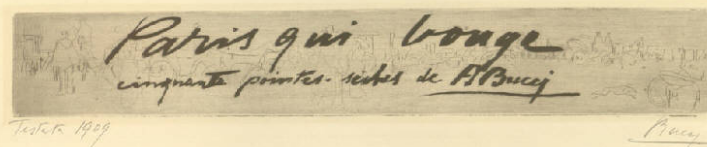 Paris qui bouge
cinquante pointes-sèches de A Bucci
Testata 1909
Bucci